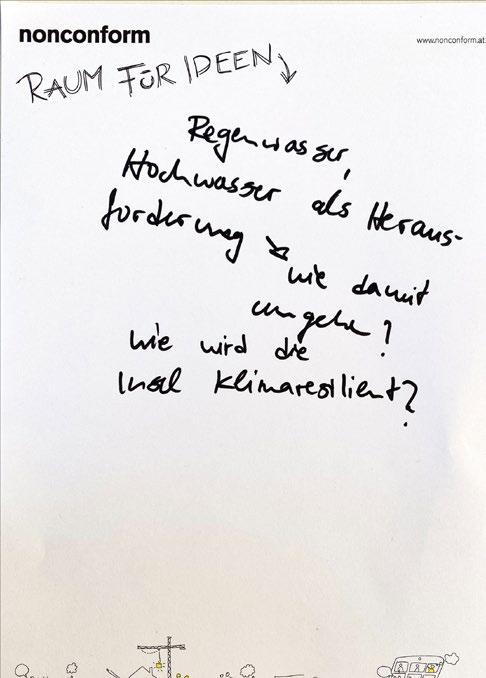 nonconform
www.nonconform.at
RAUM FÜR IDEEN
Regenwasser,
Hochwasser als Heraus-
forderung
wie damit
umgehen?
wie wird die
Insel klimaresilient?